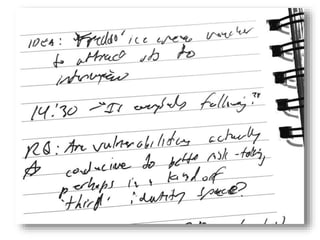 IDEA: 'Freddo' ice cream voucher
to attract to
interviews
14:30 - "Is everybody following?"
RQ: Are vulnerabilities actually
conducive to better risk-taking,
perhaps in a kind of
'third' identity space?